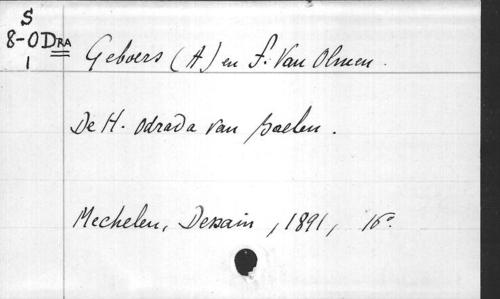 S
8-ODRA
1
Geboers (A) en F. Van Olmen.
De H. Odrada van Baelen.
Mechelen, Dessain, 1891, 16°.